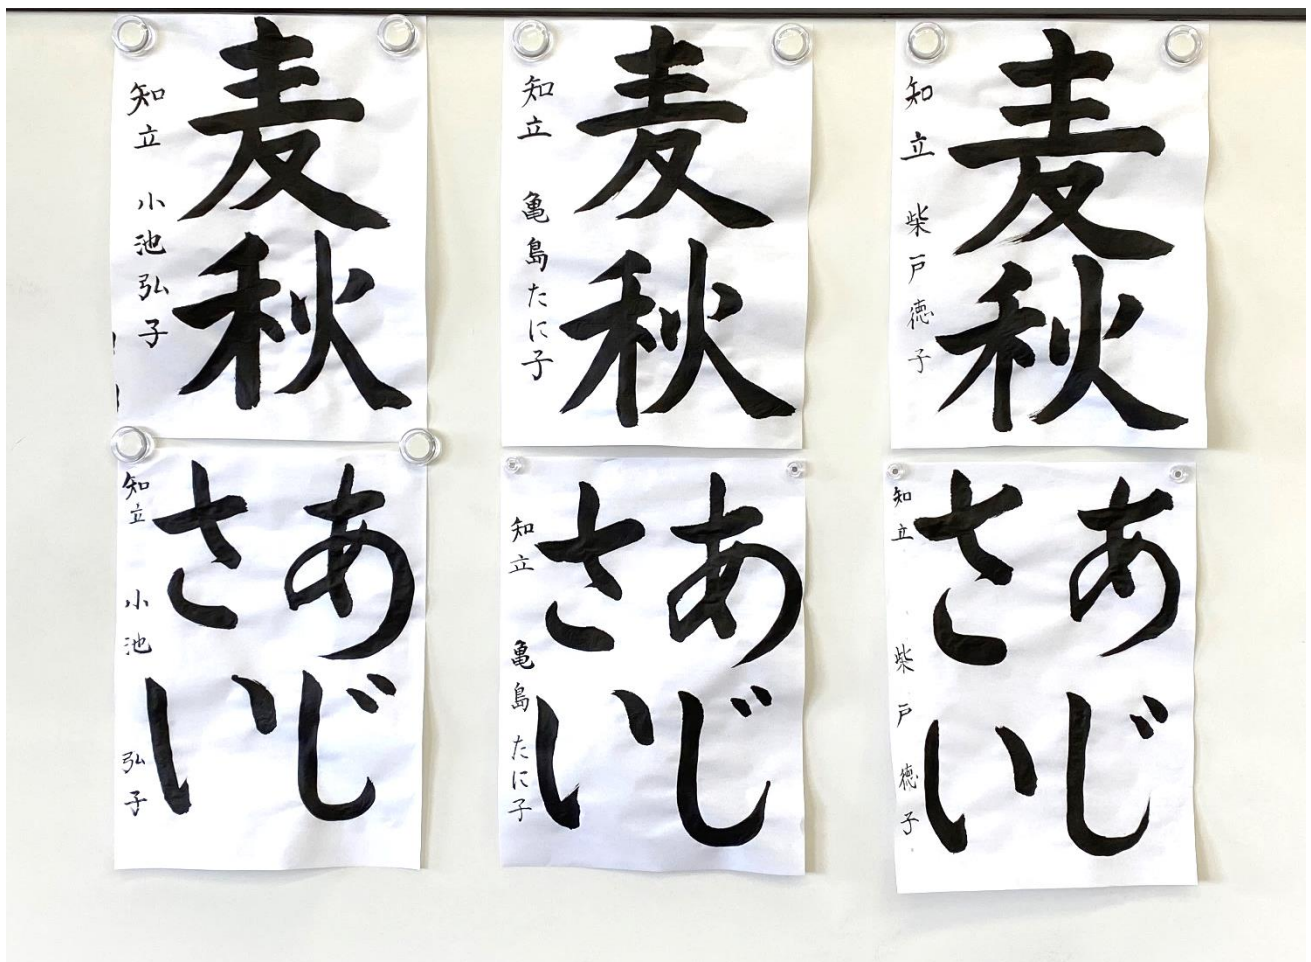 麦秋
知立 小池弘子
麦秋
知立 亀島たに子
麦秋
知立 柴戸徳子
あじ
さい
知立 小池 弘子
あじ
さい
知立 亀島たに子
あじ
さい
知立 柴戸徳子